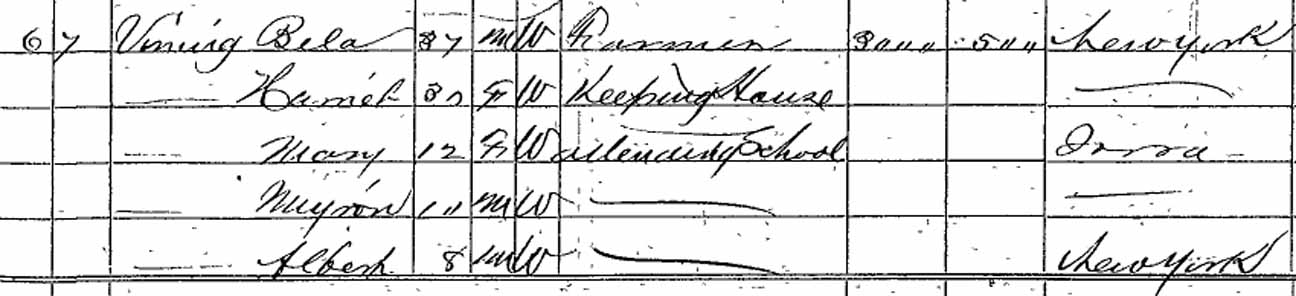 6 7 Vining Bela 37 M W Farmer 3000 500 New York
— Harriet 30 F W Keeping House —
— Mary 12 F W attending School Iowa
— Myron 10 M W — —
— Albert 8 M W — New York